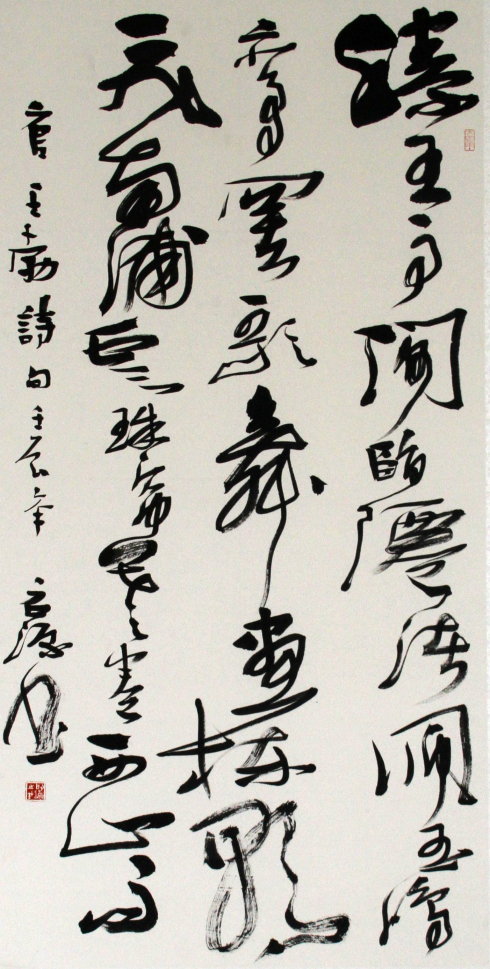 滕王高阁臨江渚佩玉鳴
鸞罷歌舞畫棟朝
飛南浦雲珠簾暮卷西山雨
唐王勃詩句壬辰年書